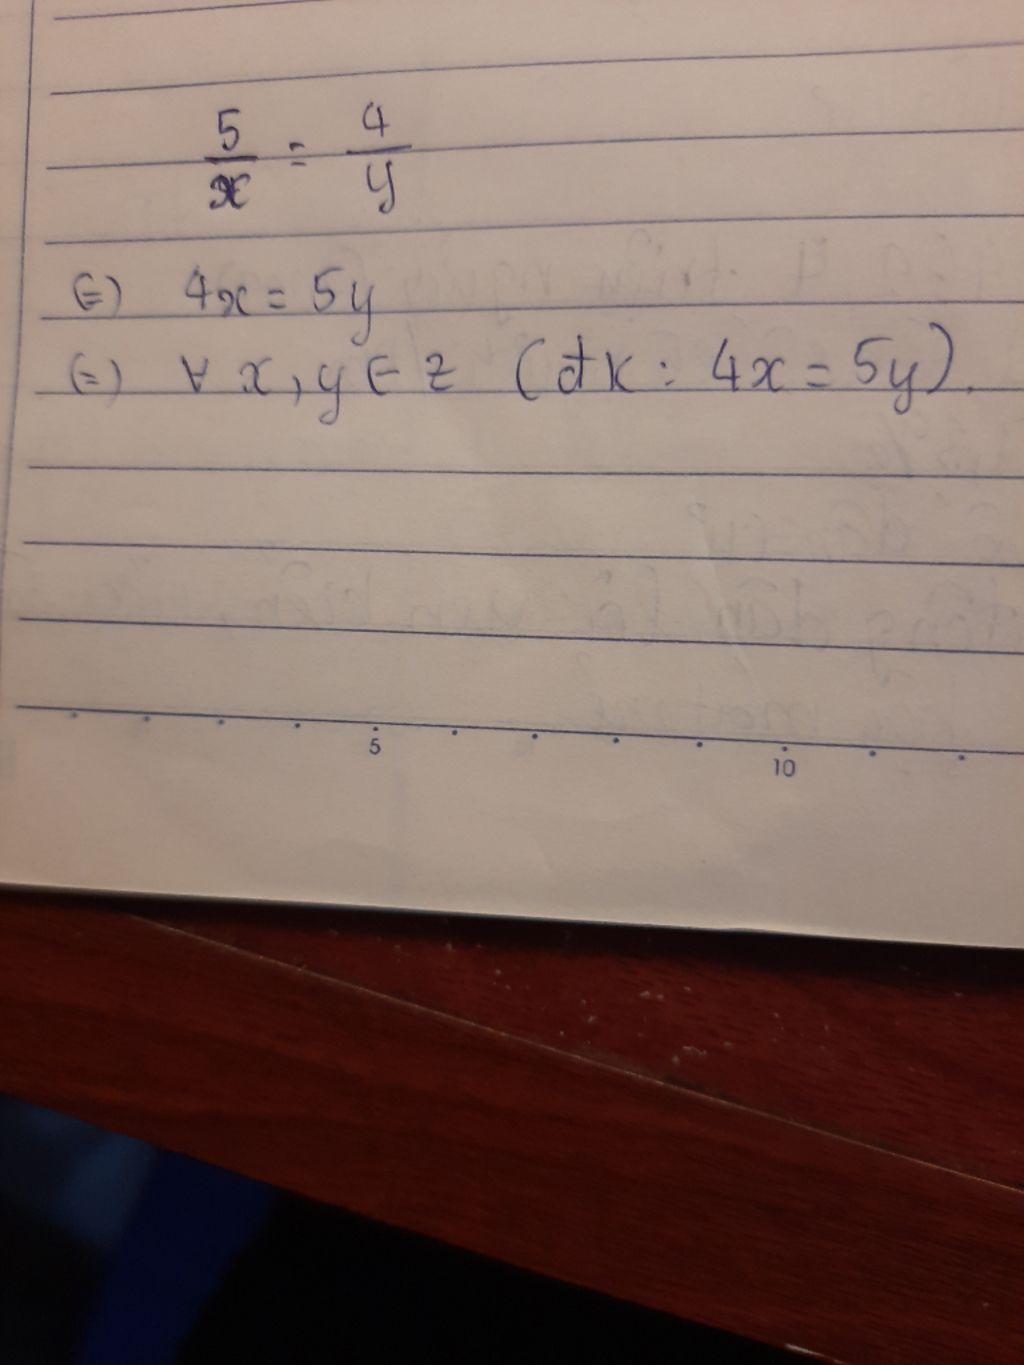 5/x = 4/y
⇔ 4x = 5y
⇔ ∀ x, y ∈ Z (đk: 4x = 5y).
5 10